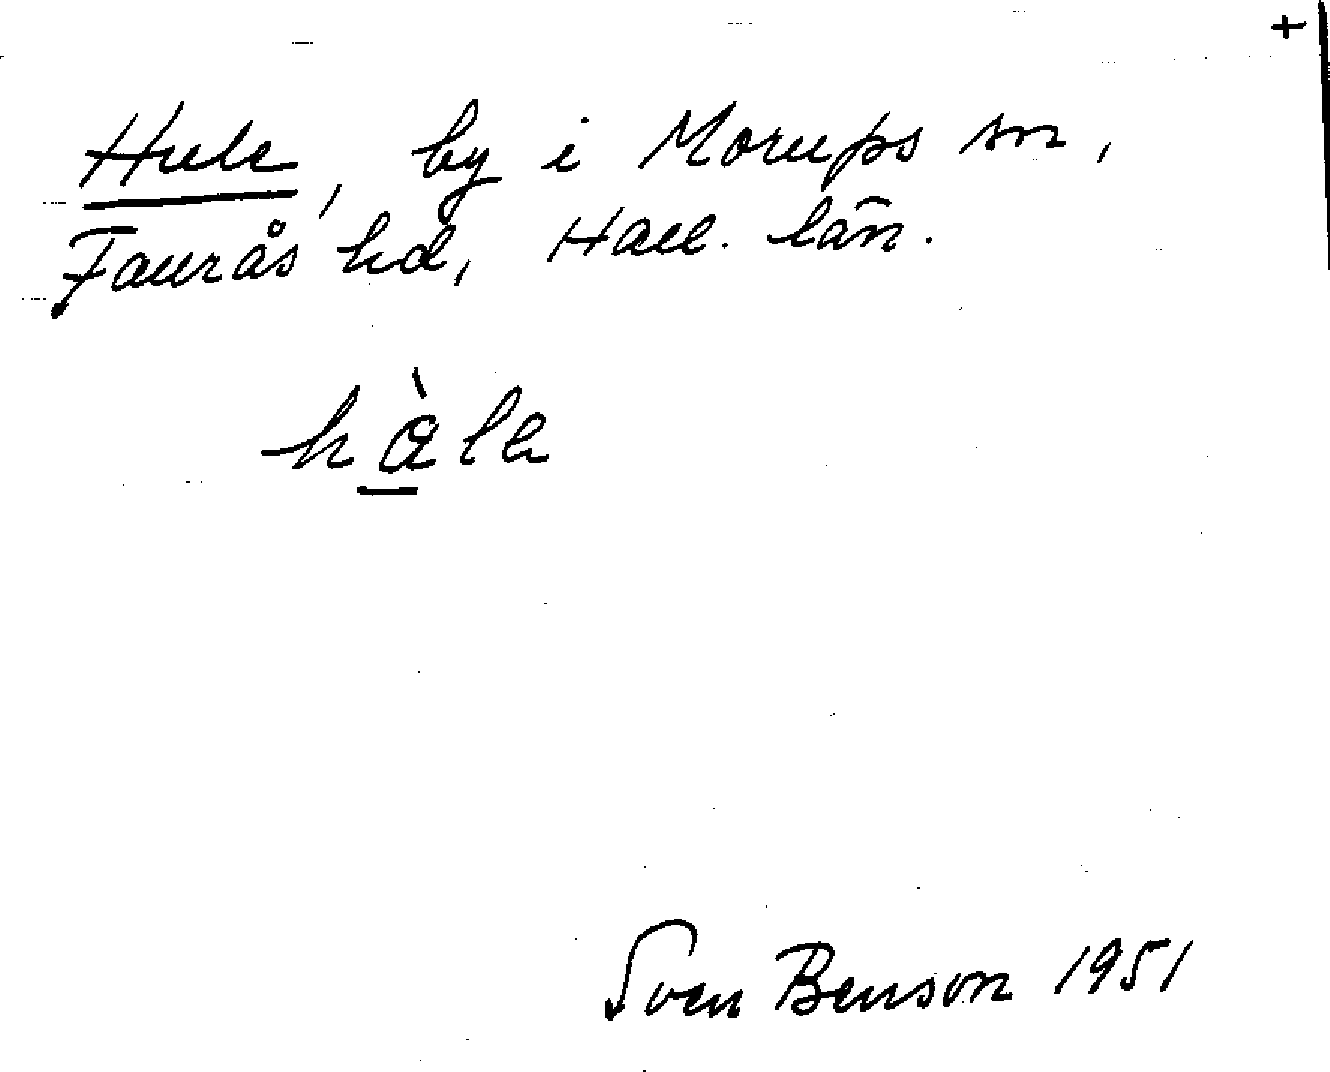 +
Hule, by i Morups sn,
Faurås hd, Hall. län.
Sven Benson 1951